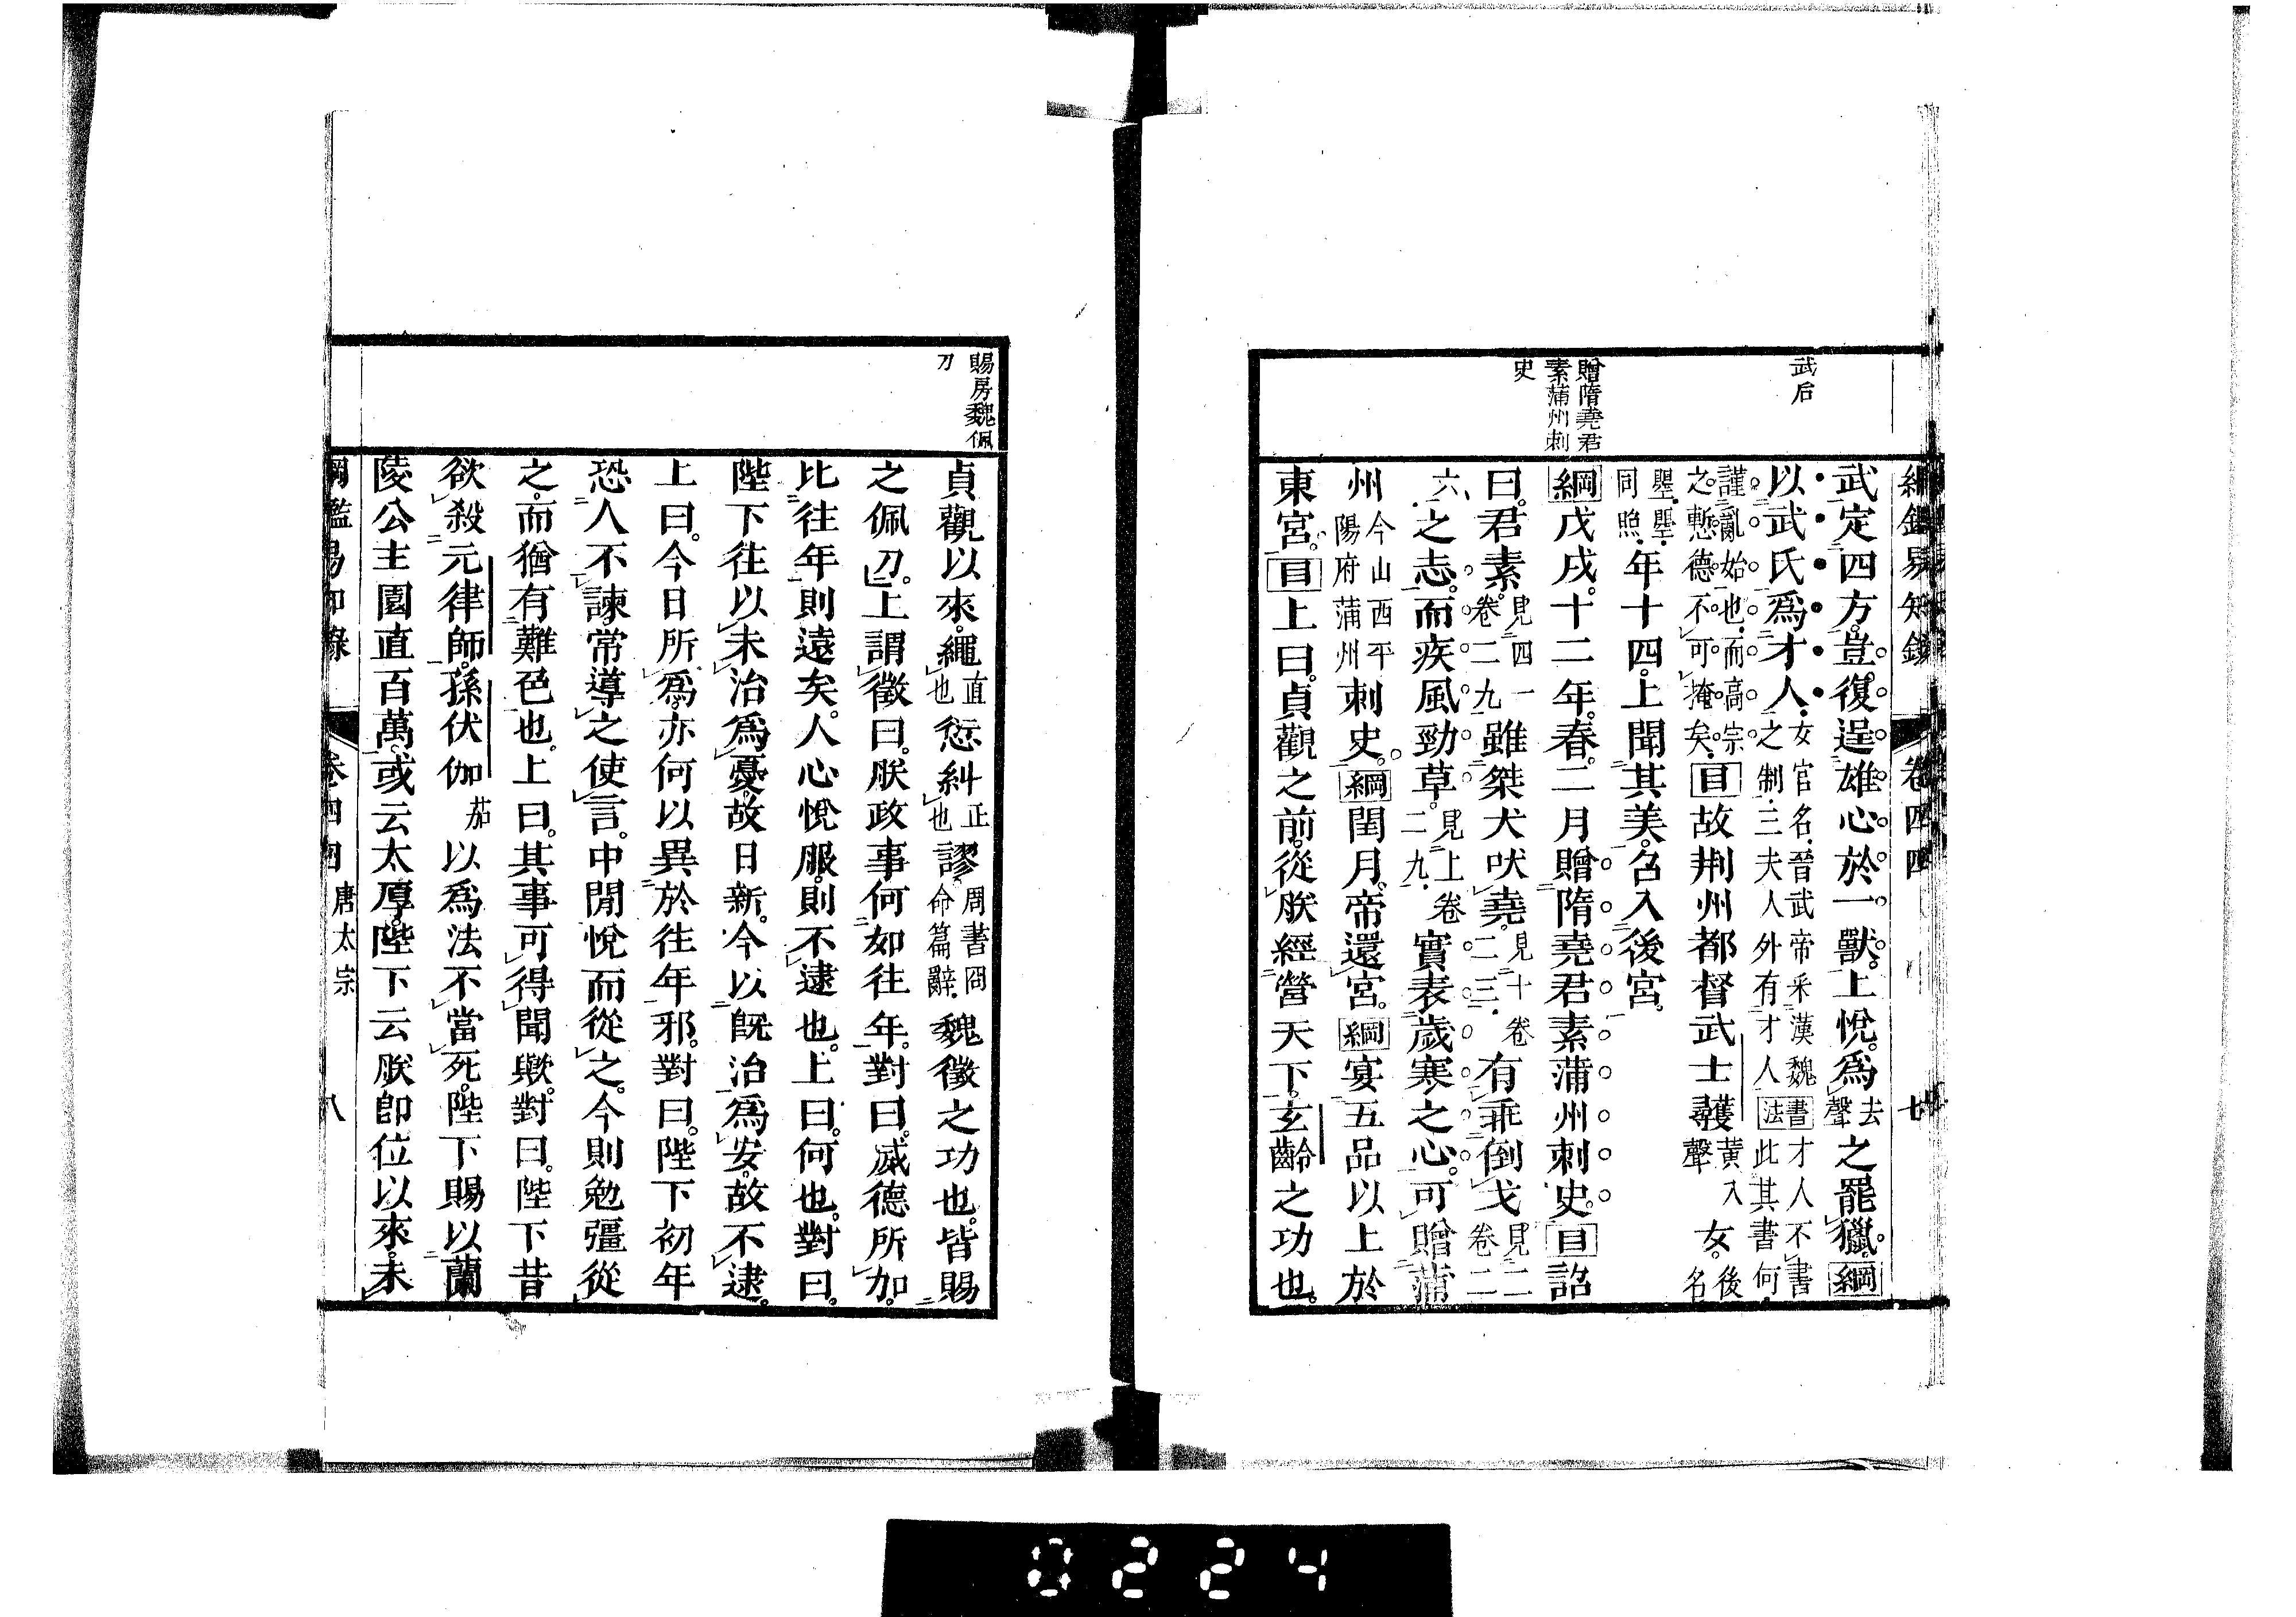 綱鑑易知錄 卷四四 七
武后
贈隋堯君
素蒲州刺
史
武定四方。豈復逞雄心於一獸。上悅。爲去聲之罷獵。綱
以武氏爲才人。女官名。晉武帝采漢魏之制。三夫人外有才人書法才人不書此其書何
謹亂始也。而高宗之慙德不可掩矣。目故荆州都督武士彠黃入聲女。後名
曌。曌同照。年十四。上聞其美。召入後宮。
綱戊戌。十二年。春。二月。贈隋堯君素蒲州刺史。目詔
曰。君素。見四一卷二九雖桀犬吠堯。見十卷二三。有乖倒戈見二卷二
六、之志。而疾風勁草。見上卷二九。實表歲寒之心。可贈蒲
州今山西平陽府蒲州刺史。綱閏月。帝還宮。綱宴五品以上於
東宮。目上曰。貞觀之前。從朕經營天下。玄齡之功也。
賜房魏佩
刀
貞觀以來。繩直也愆糾正也謬周書冏命篇辭。魏徵之功也。皆賜
之佩刀。上謂徵曰。朕政事何如往年。對曰。威德所加。
比往年則遠矣。人心悅服。則不逮也。上曰。何也。對曰。
陛下往以未治爲憂。故日新。今以旣治爲安。故不逮。
上曰。今日所爲。亦何以異於往年邪。對曰。陛下初年
恐人不諫。常導之使言。中閒悅而從之。今則勉彊從
之。而猶有難色也。上曰。其事可得聞歟。對曰。陛下昔
欲殺元律師。孫伏伽茄以爲法不當死。陛下賜以蘭
陵公主園直百萬。或云太厚。陛下云朕卽位以來。未
綱鑑易知錄 卷四四 唐太宗 八
0224